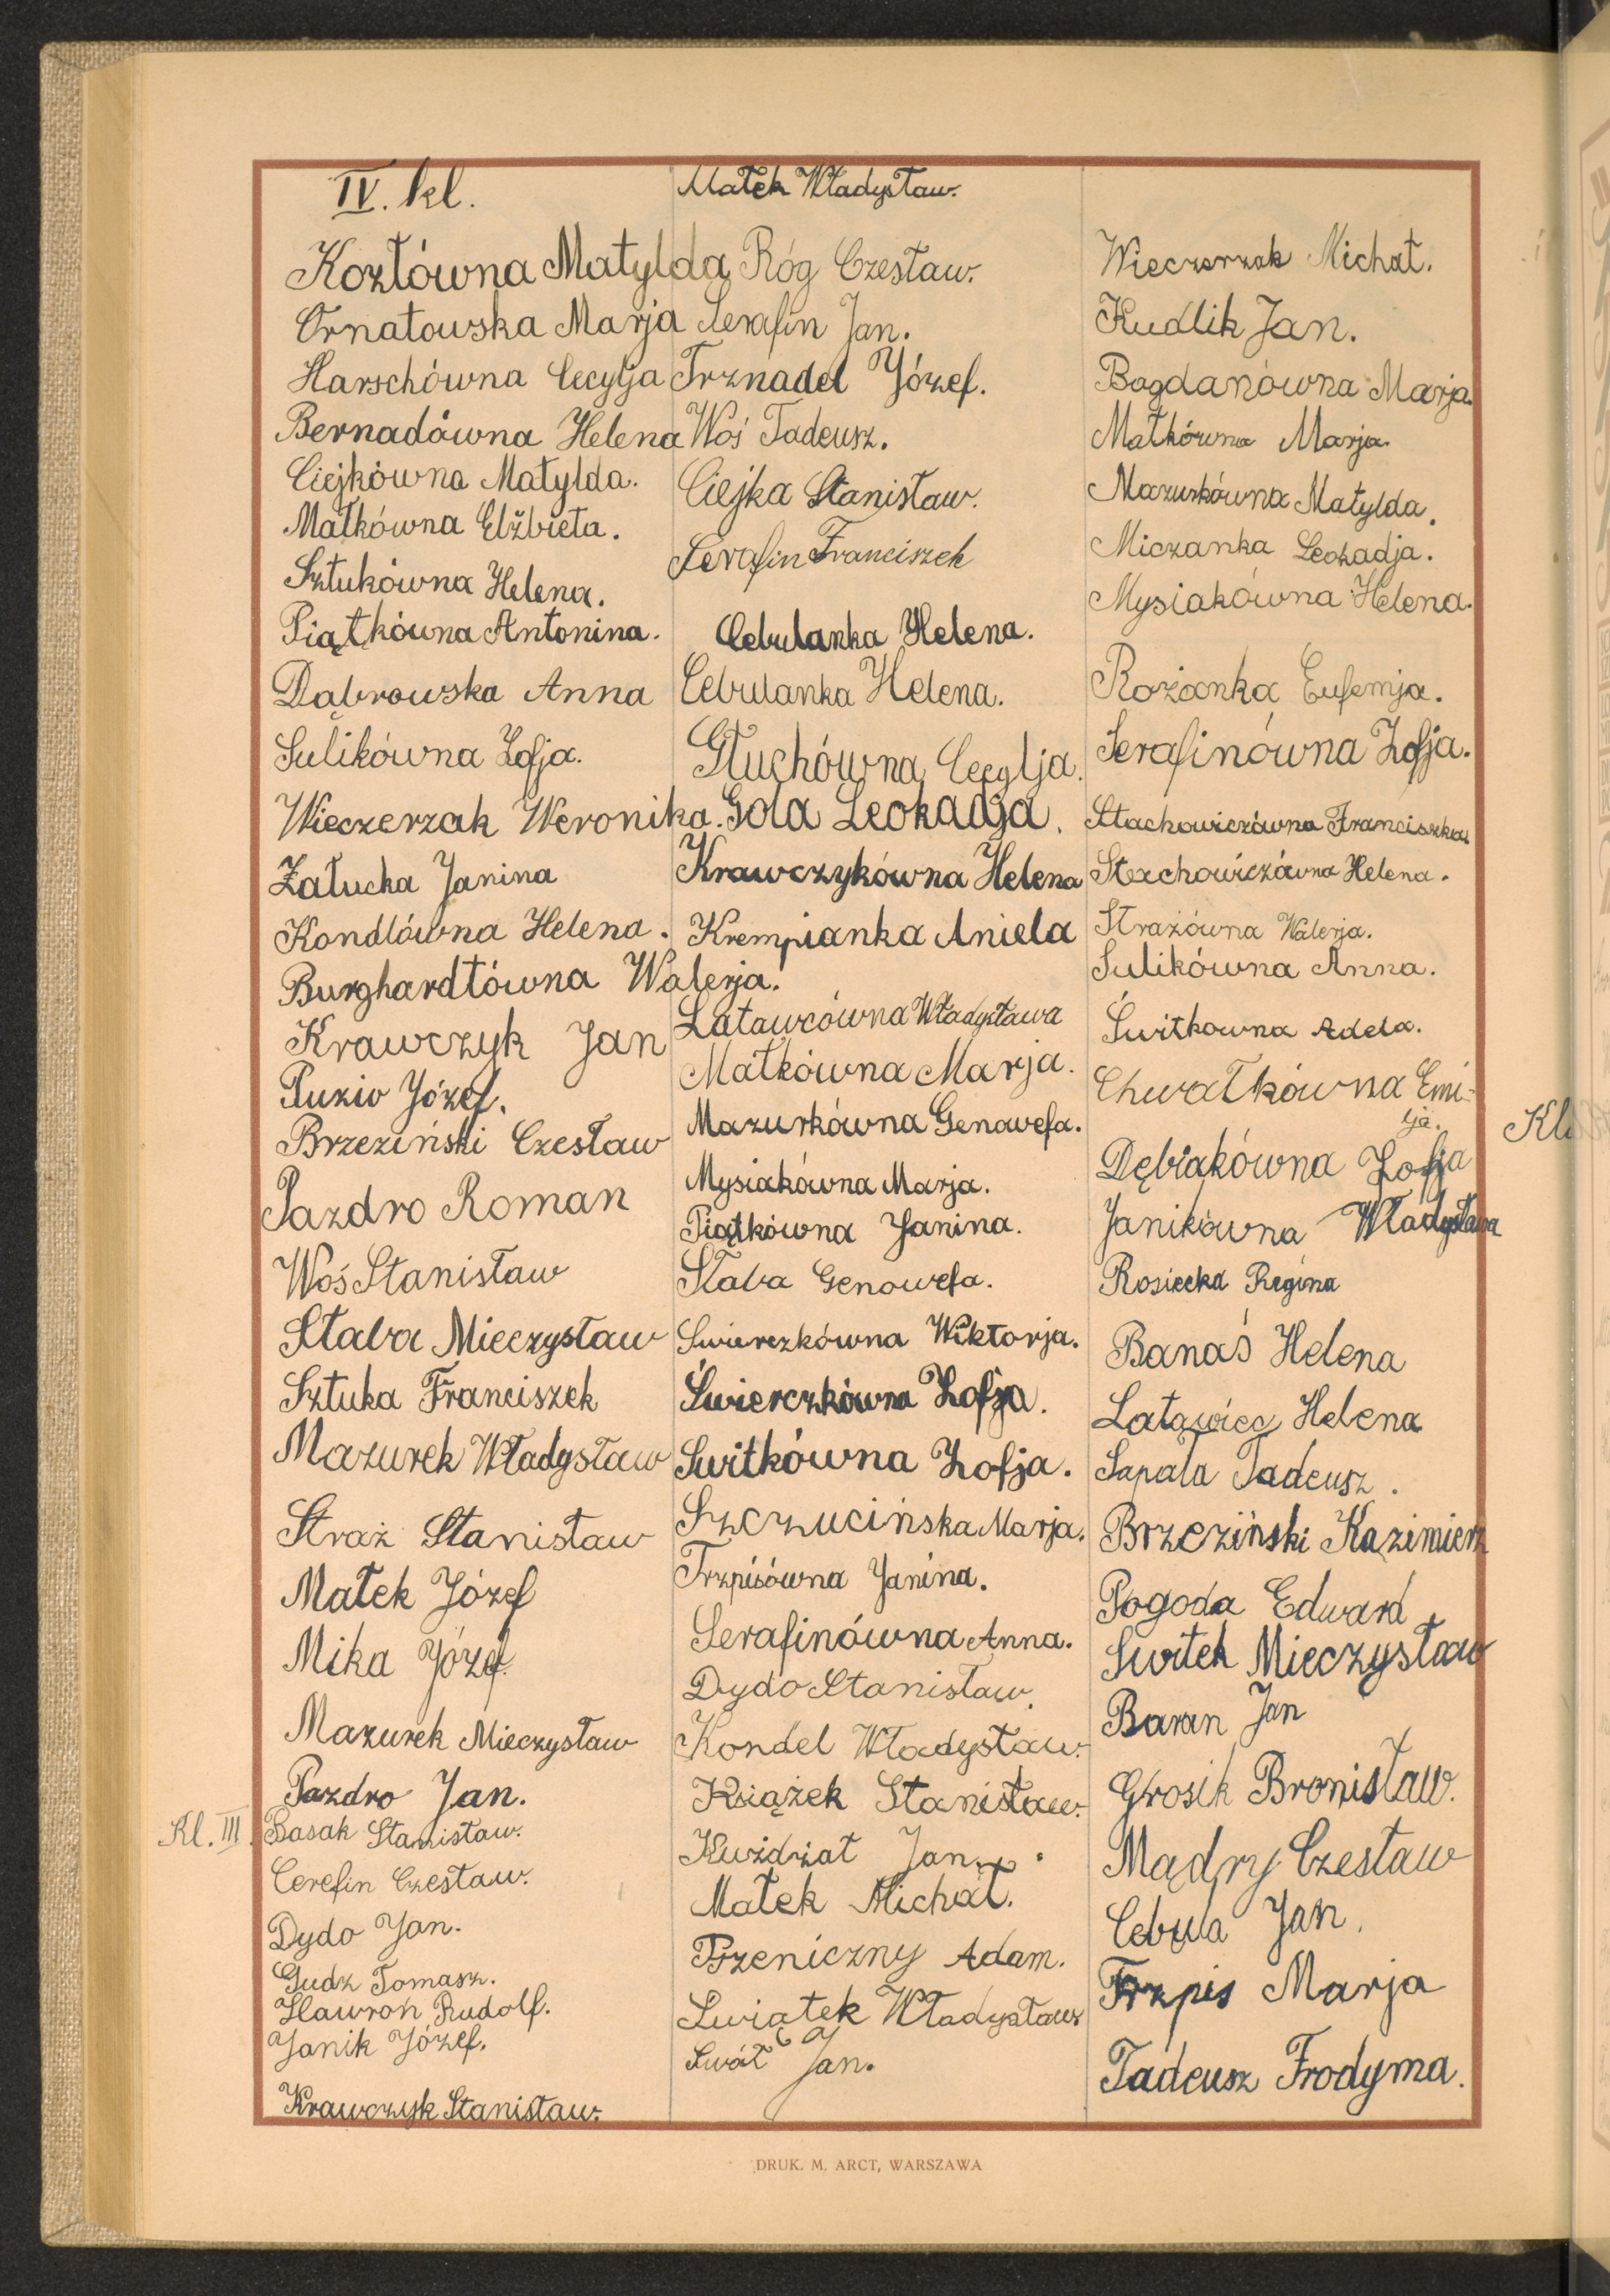 IV. kl.
Kozłówna Matylda
Ornatowska Marja
Harschówna Cecylja
Bernadówna Helena
Ciejkówna Matylda.
Małkówna Elżbieta.
Sztukówna Helena.
Piątkówna Antonina.
Dąbrowska Anna
Sulikówna Zofja.
Wieczerzak Weronika.
Załucka Janina
Kondlówna Helena.
Burghardtówna Walerja.
Krawczyk Jan
Puzio Józef.
Brzeziński Czesław
Pazdro Roman
Woś Stanisław
Słaba Mieczysław
Sztuka Franciszek
Mazurek Władysław
Straż Stanisław
Małek Józef
Mika Józef.
Mazurek Mieczysław
Pazdro Jan.
Kl. III. Basak Stanisław.
Cerefin Czesław.
Dydo Jan.
Gudz Tomasz.
Hawron Rudolf.
Janik Józef.
Krawczyk Stanisław.
Małek Władysław.
Róg Czesław.
Serafin Jan.
Trznadel Józef.
Woś Tadeusz.
Ciejka Stanisław.
Serafin Franciszek
Cebulanka Helena.
Cebulanka Helena.
Głuchówna Cecylja.
Gola Leokadja.
Krawczykówna Helena
Krempianka Aniela
Latawcówna Władysława
Małkówna Marja.
Mazurkówna Genowefa.
Mysiakówna Marja.
Piątkówna Janina.
Słaba Genowefa.
Swierczkówna Wiktorja.
Świerczkówna Zofja.
Switkówna Zofja.
Szczucińska Marja.
Trzpisówna Janina.
Serafinówna Anna.
Dydo Stanisław.
Kondel Władysław.
Książek Stanisław.
Kuźdżał Jan.
Małek Michał.
Przeniczny Adam.
Swiątek Władysław
Swół Jan.
Wieczerzak Michał.
Kudlik Jan.
Bogdanówna Marja.
Małkówna Marja.
Mazurkówna Matylda.
Miczanka Leokadja.
Mysiakówna Helena.
Rożanka Eufemja.
Serafinówna Zofja.
Stachowiczówna Franciszka
Stachowiczówna Helena.
Strażówna Walerja.
Sulikówna Anna.
Świtkowna Adela.
Chwałkówna Emi-
lja.
Dębiakówna Zofja
Janikówna Władysława
Rosiecka Regina
Banaś Helena
Latawiec Helena
Sapała Tadeusz.
Brzeziński Kazimierz
Pogoda Edward
Switek Mieczysław
Baran Jan
Grosik Bronisław.
Mądry Czesław
Cebula Jan.
Trzpis Marja
Tadeusz Frodyma.
DRUK. M. ARCT, WARSZAWA